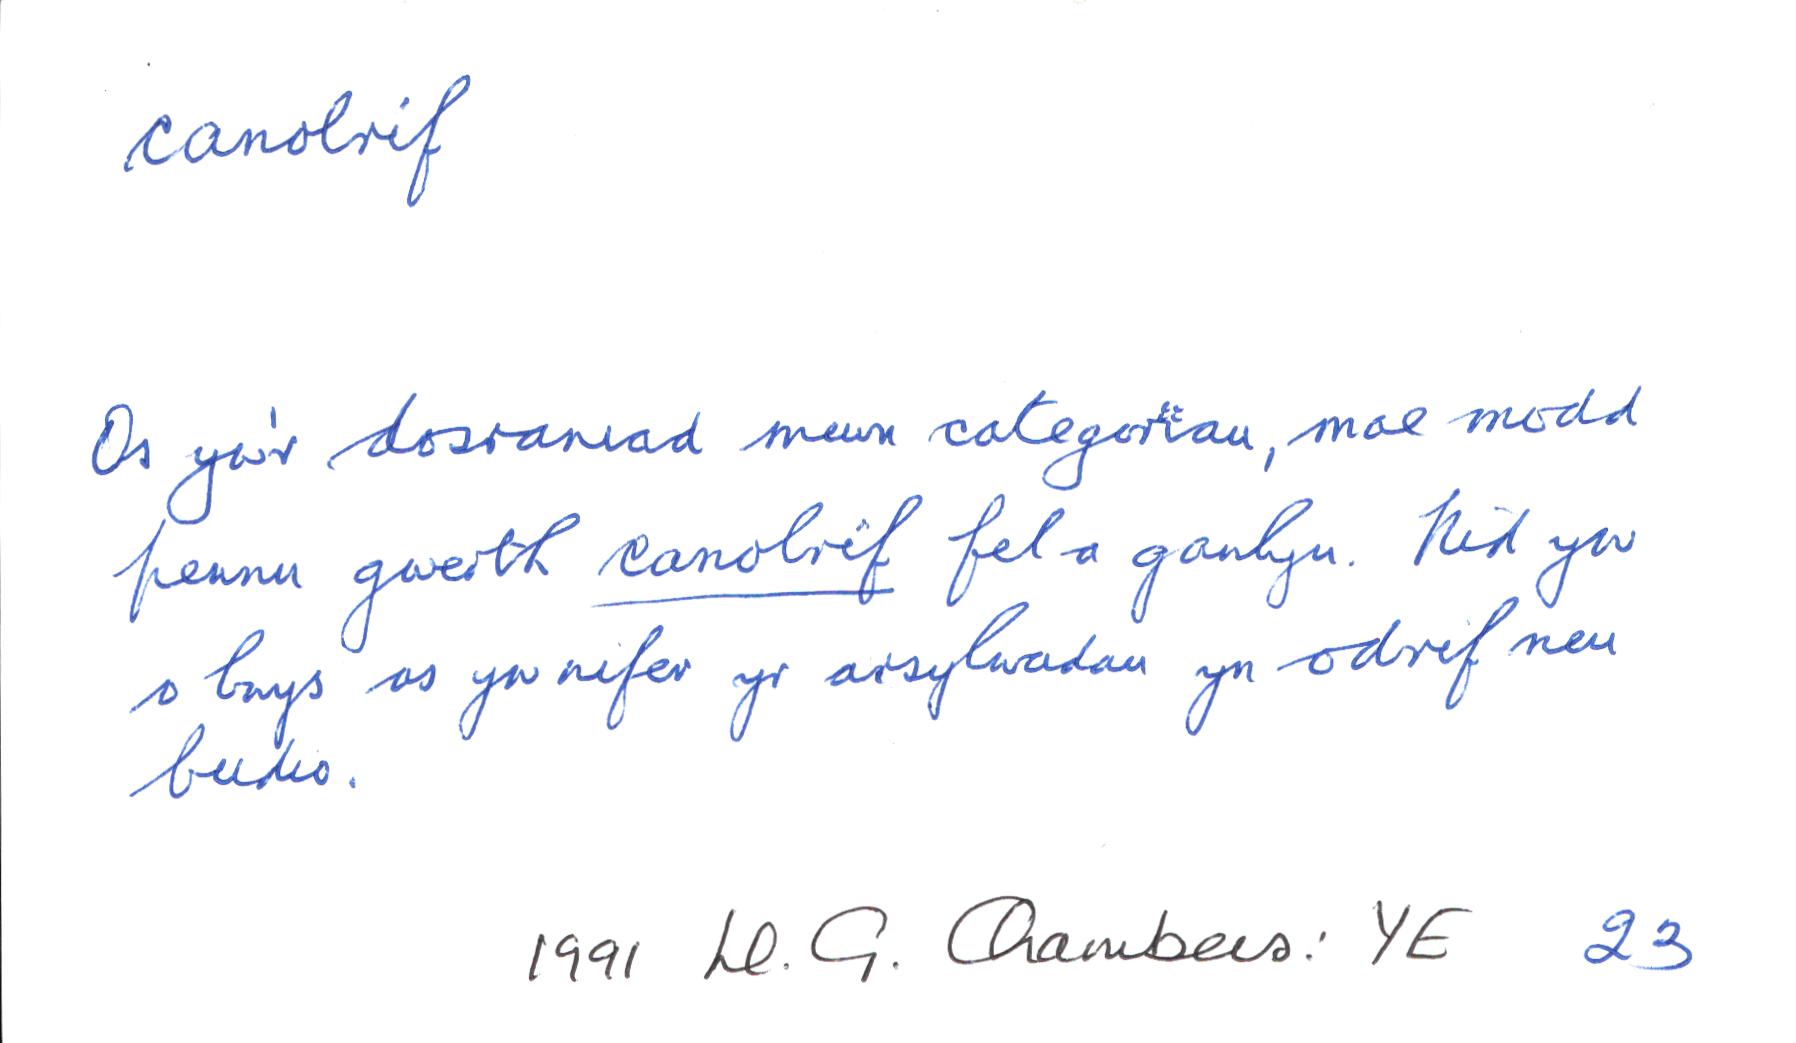 canolrif
Os yw'r dosraniad mewn categorïau, mae modd
pennu gwerth canolrif fel a ganlyn. Nid yw
o bwys os yw nifer yr arsylwadau yn odrif neu
beidio.
1991 Ll. G. Chambers: YE 23